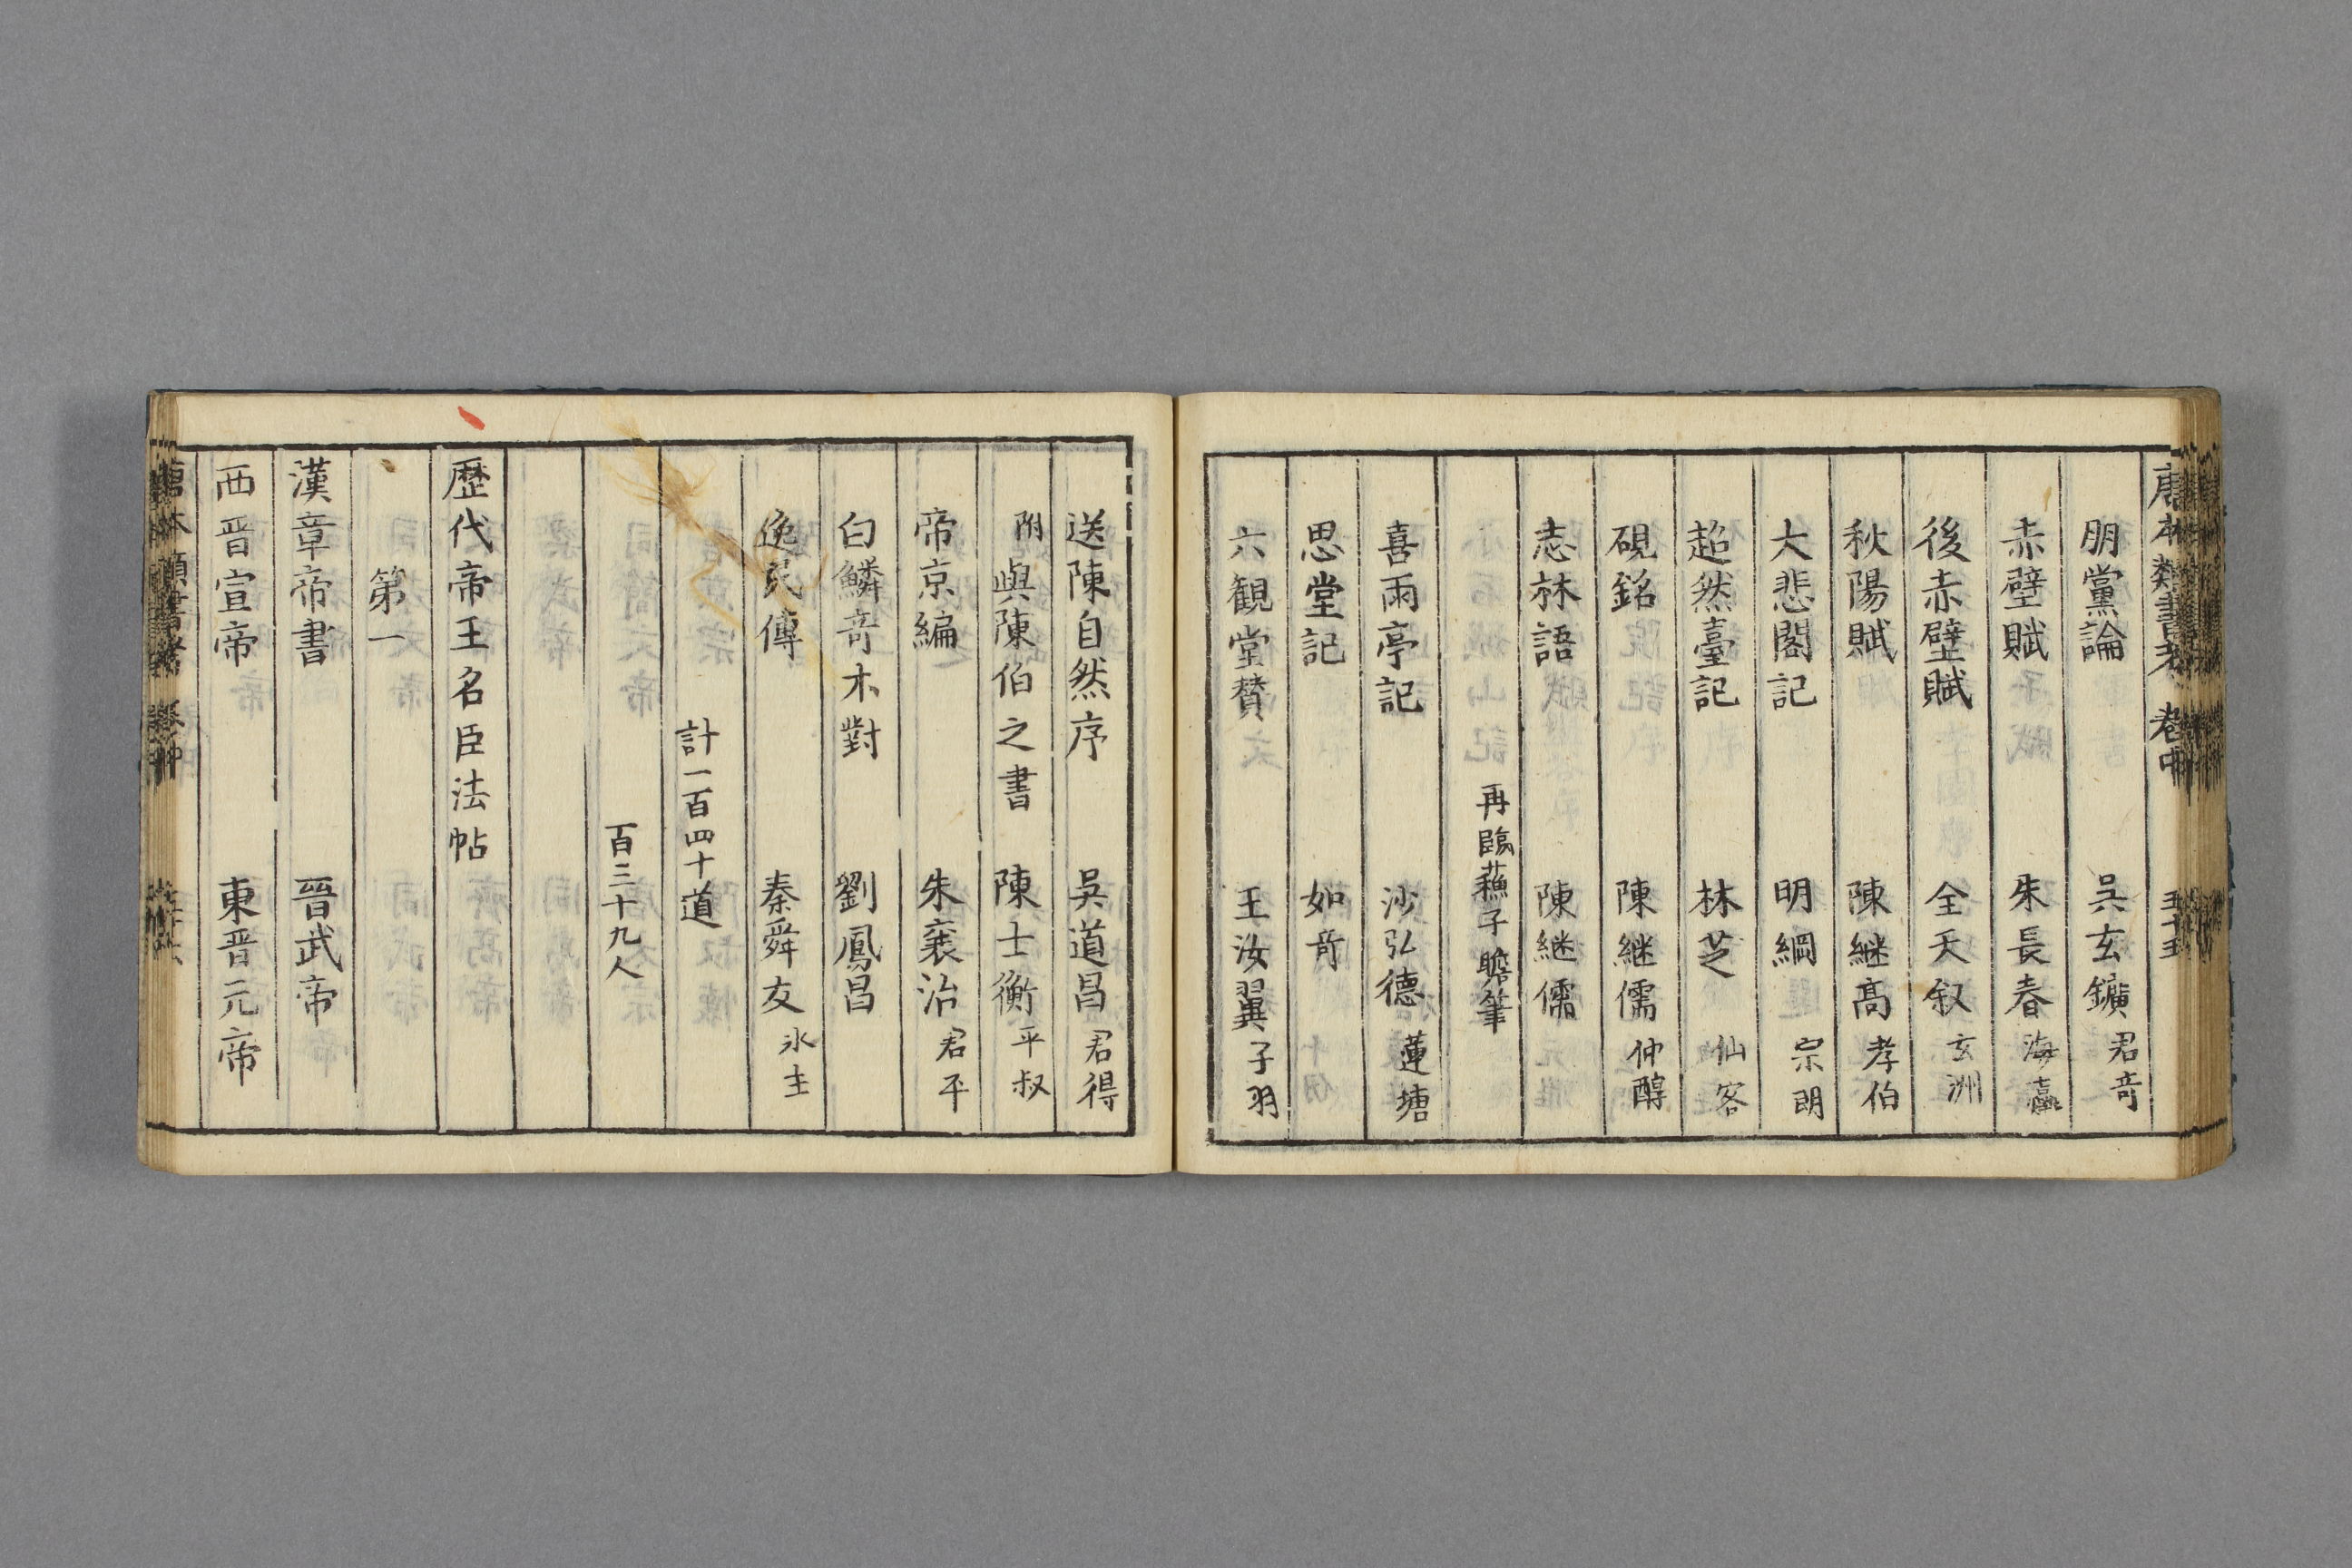 唐本類書考 卷中 五十五
朋黨論 呉玄鑛 君竒
赤壁賦 朱長春 海瀛
後赤壁賦 全天叙 玄洲
秋陽賦 陳継髙 孝伯
大悲閣記 明綱 宗朗
超然臺記 林芝 仙客
硯銘 陳継儒 仲醇
志林語 陳継儒
再臨蘓子瞻筆
喜雨亭記 沙弘德 蓮塘
思堂記 如竒
六観堂賛 王汝翼 子羽
送陳自然序 呉道昌 君得
附與陳伯之書 陳士衡 平叔
帝京編 朱襄治 君平
白鱗竒木對 劉鳳昌
逸民傳 秦舜友 氷主
計一百四十道
百三十九人
歴代帝王名臣法帖
第一
漢章帝書 晉武帝
西晋宣帝 東晋元帝
唐本類書考 卷中